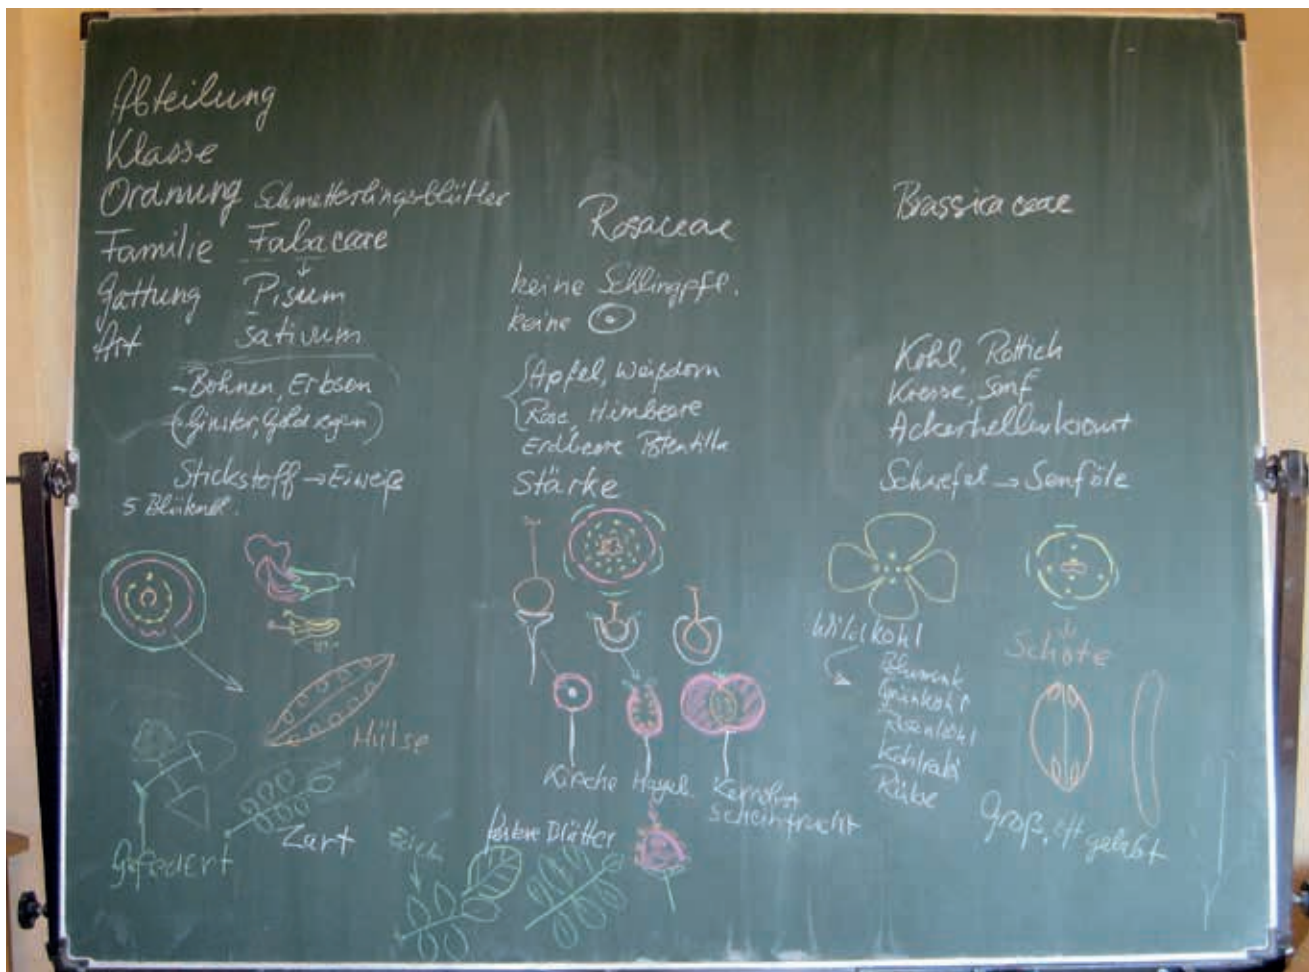 Abteilung
Klasse
Ordnung Schmetterlingsblütler
Familie Fabaceae
Gattung Pisum
Art sativum
Bohnen, Erbsen
(Ginster, Goldregen)
Stickstoff → Eiweiß
Hülse
Gefiedert
Zart
Rosaceae
keine Schlingpfl.
keine
Apfel, Weißdorn
Rose, Himbeere
Erdbeere Potentilla
Stärke
Kirsche
Kernobst
Scheinfrucht
Blätter
Brassicaceae
Kohl, Rettich
Kresse, Senf
Schwefel → Senföle
Wildkohl
Blumenk
Grünkohl
Rosenkohl
Kohlrabi
Rübe
Schote
Groß, oft gelappt